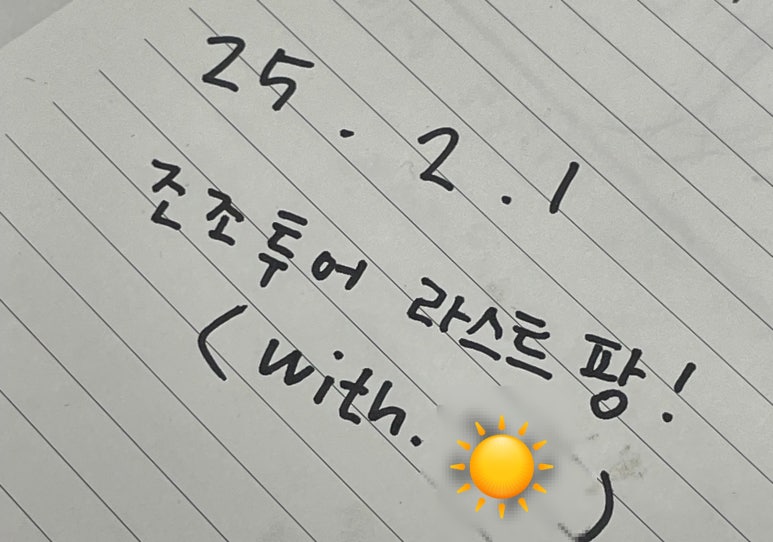 25.2.1
존조투어 라스트 팡!
(with. ☀️)